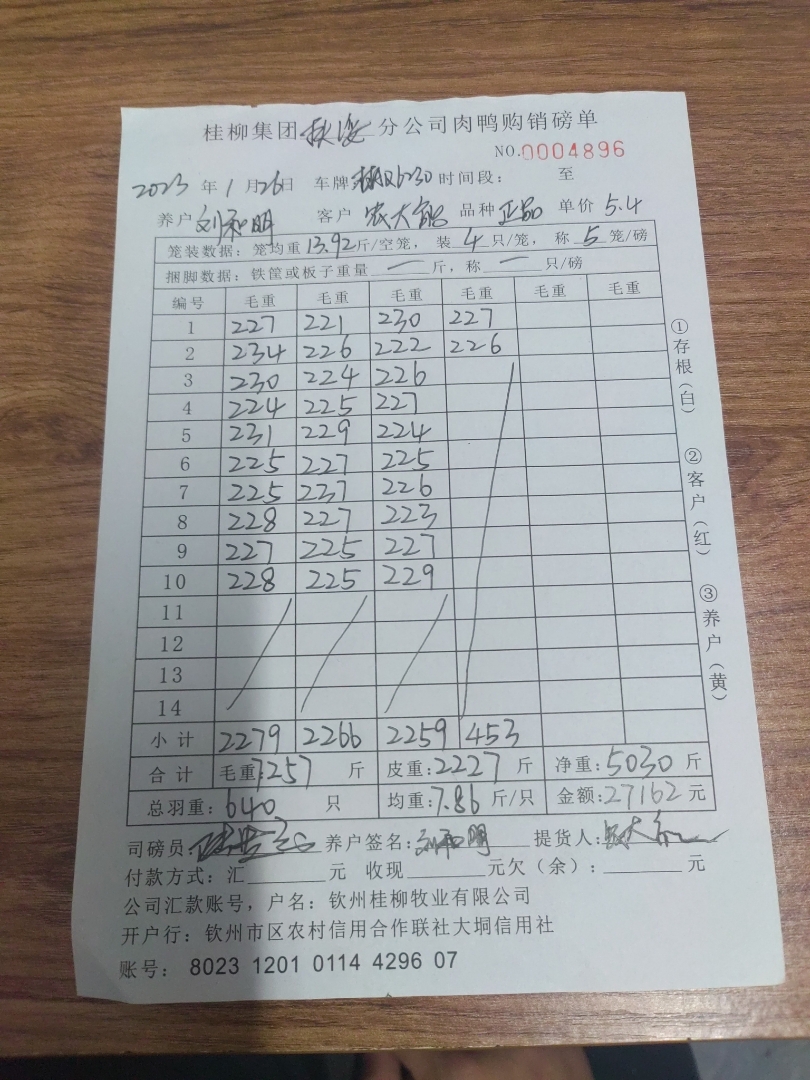 桂柳集团 分公司肉鸭购销磅单
NO.0004896
2023 年 1 月 26 日 车牌 6230 时间段: 至
养户 刘和明 客户 农大 品种 正品 单价 5.4
笼装数据: 笼均重 13.92 斤/空笼, 装 4 只/笼, 称 5 笼/磅
捆脚数据: 铁筐或板子重量 一 斤, 称 一 只/磅
编号 毛重 毛重 毛重 毛重 毛重 毛重
1 227 221 230 227
2 234 226 222 226
3 230 224 226
4 224 225 227
5 231 229 224
6 225 227 225
7 225 237 226
8 228 227 223
9 227 225 227
10 228 225 229
11
12
13
14
小计 2279 2266 2259 453
合计 毛重: 7257 斤 皮重: 2227 斤 净重: 5030 斤
总羽重: 640 只 均重: 7.86 斤/只 金额: 27162 元
司磅员: 养户签名: 刘和明 提货人: 农大
付款方式: 汇 元 收现 元欠(余): 元
公司汇款账号, 户名: 钦州桂柳牧业有限公司
开户行: 钦州市区农村信用合作联社大垌信用社
账号: 8023 1201 0114 4296 07
①存根(白)
②客户(红)
③养户(黄)